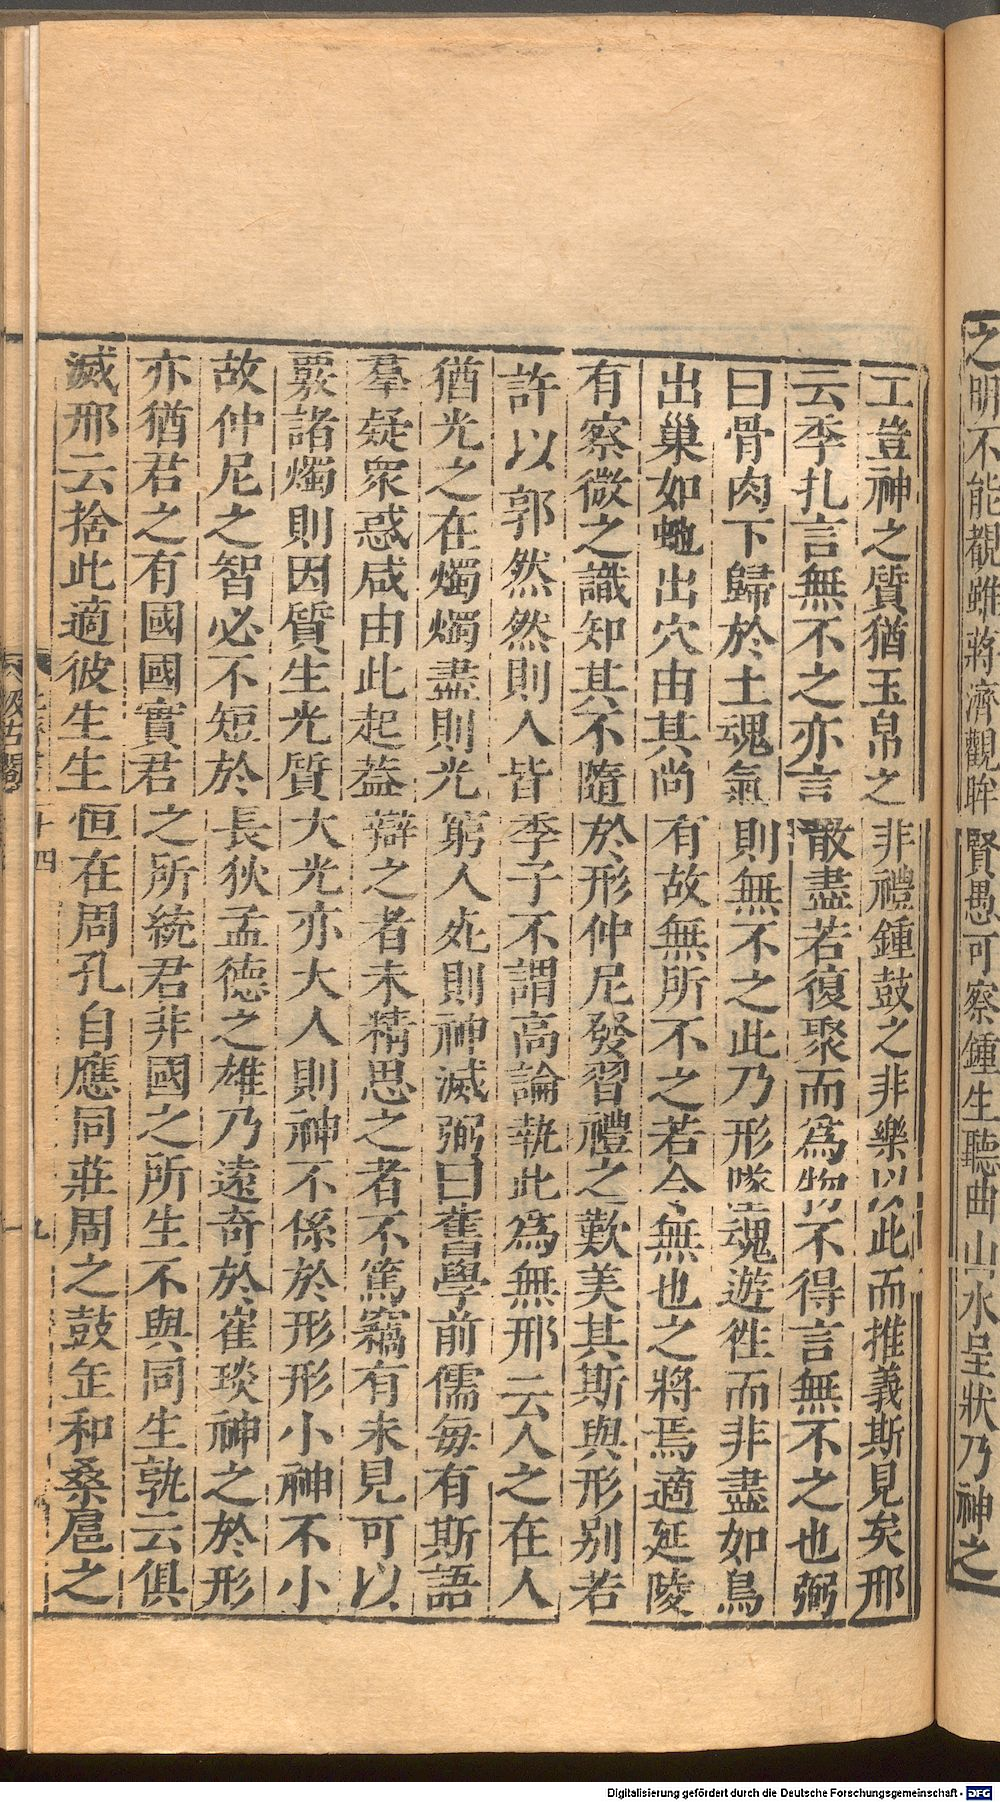 之明不能覩雖蔣濟觀眸賢愚可察鍾生聽曲山水呈狀乃神之
工豈神之質猶玉帛之非禮鍾鼓之非樂以此而推義斯見矣邢
云季札言無不之亦言散盡若復聚而爲物不得言無不之也弼
曰骨肉下歸於土魂氣則無不之此乃形墜魂遊徃而非盡如鳥
出巢如虵出穴由其尚有故無所不之若令無也之將焉適延陵
有察微之識知其不隨於形仲尼發習禮之歎美其斯與形别若
許以郭然然則人皆季子不謂高論執此爲無邢云人之在人
猶光之在燭燭盡則光窮人死則神滅弼曰舊學前儒每有斯語
羣疑衆惑咸由此起蓋辯之者未精思之者不篤竊有未見可以
覈諸燭則因質生光質大光亦大人則神不係於形形小神不小
故仲尼之智必不短於長狄孟德之雄乃遠奇於崔琰神之於形
亦猶君之有國國實君之所統君非國之所生不與同生孰云俱
滅邢云捨此適彼生生恒在周孔自應同莊周之鼓缶和桑扈之
汲古閣
十四
九
Digitalisierung gefördert durch die Deutsche Forschungsgemeinschaft - DFG